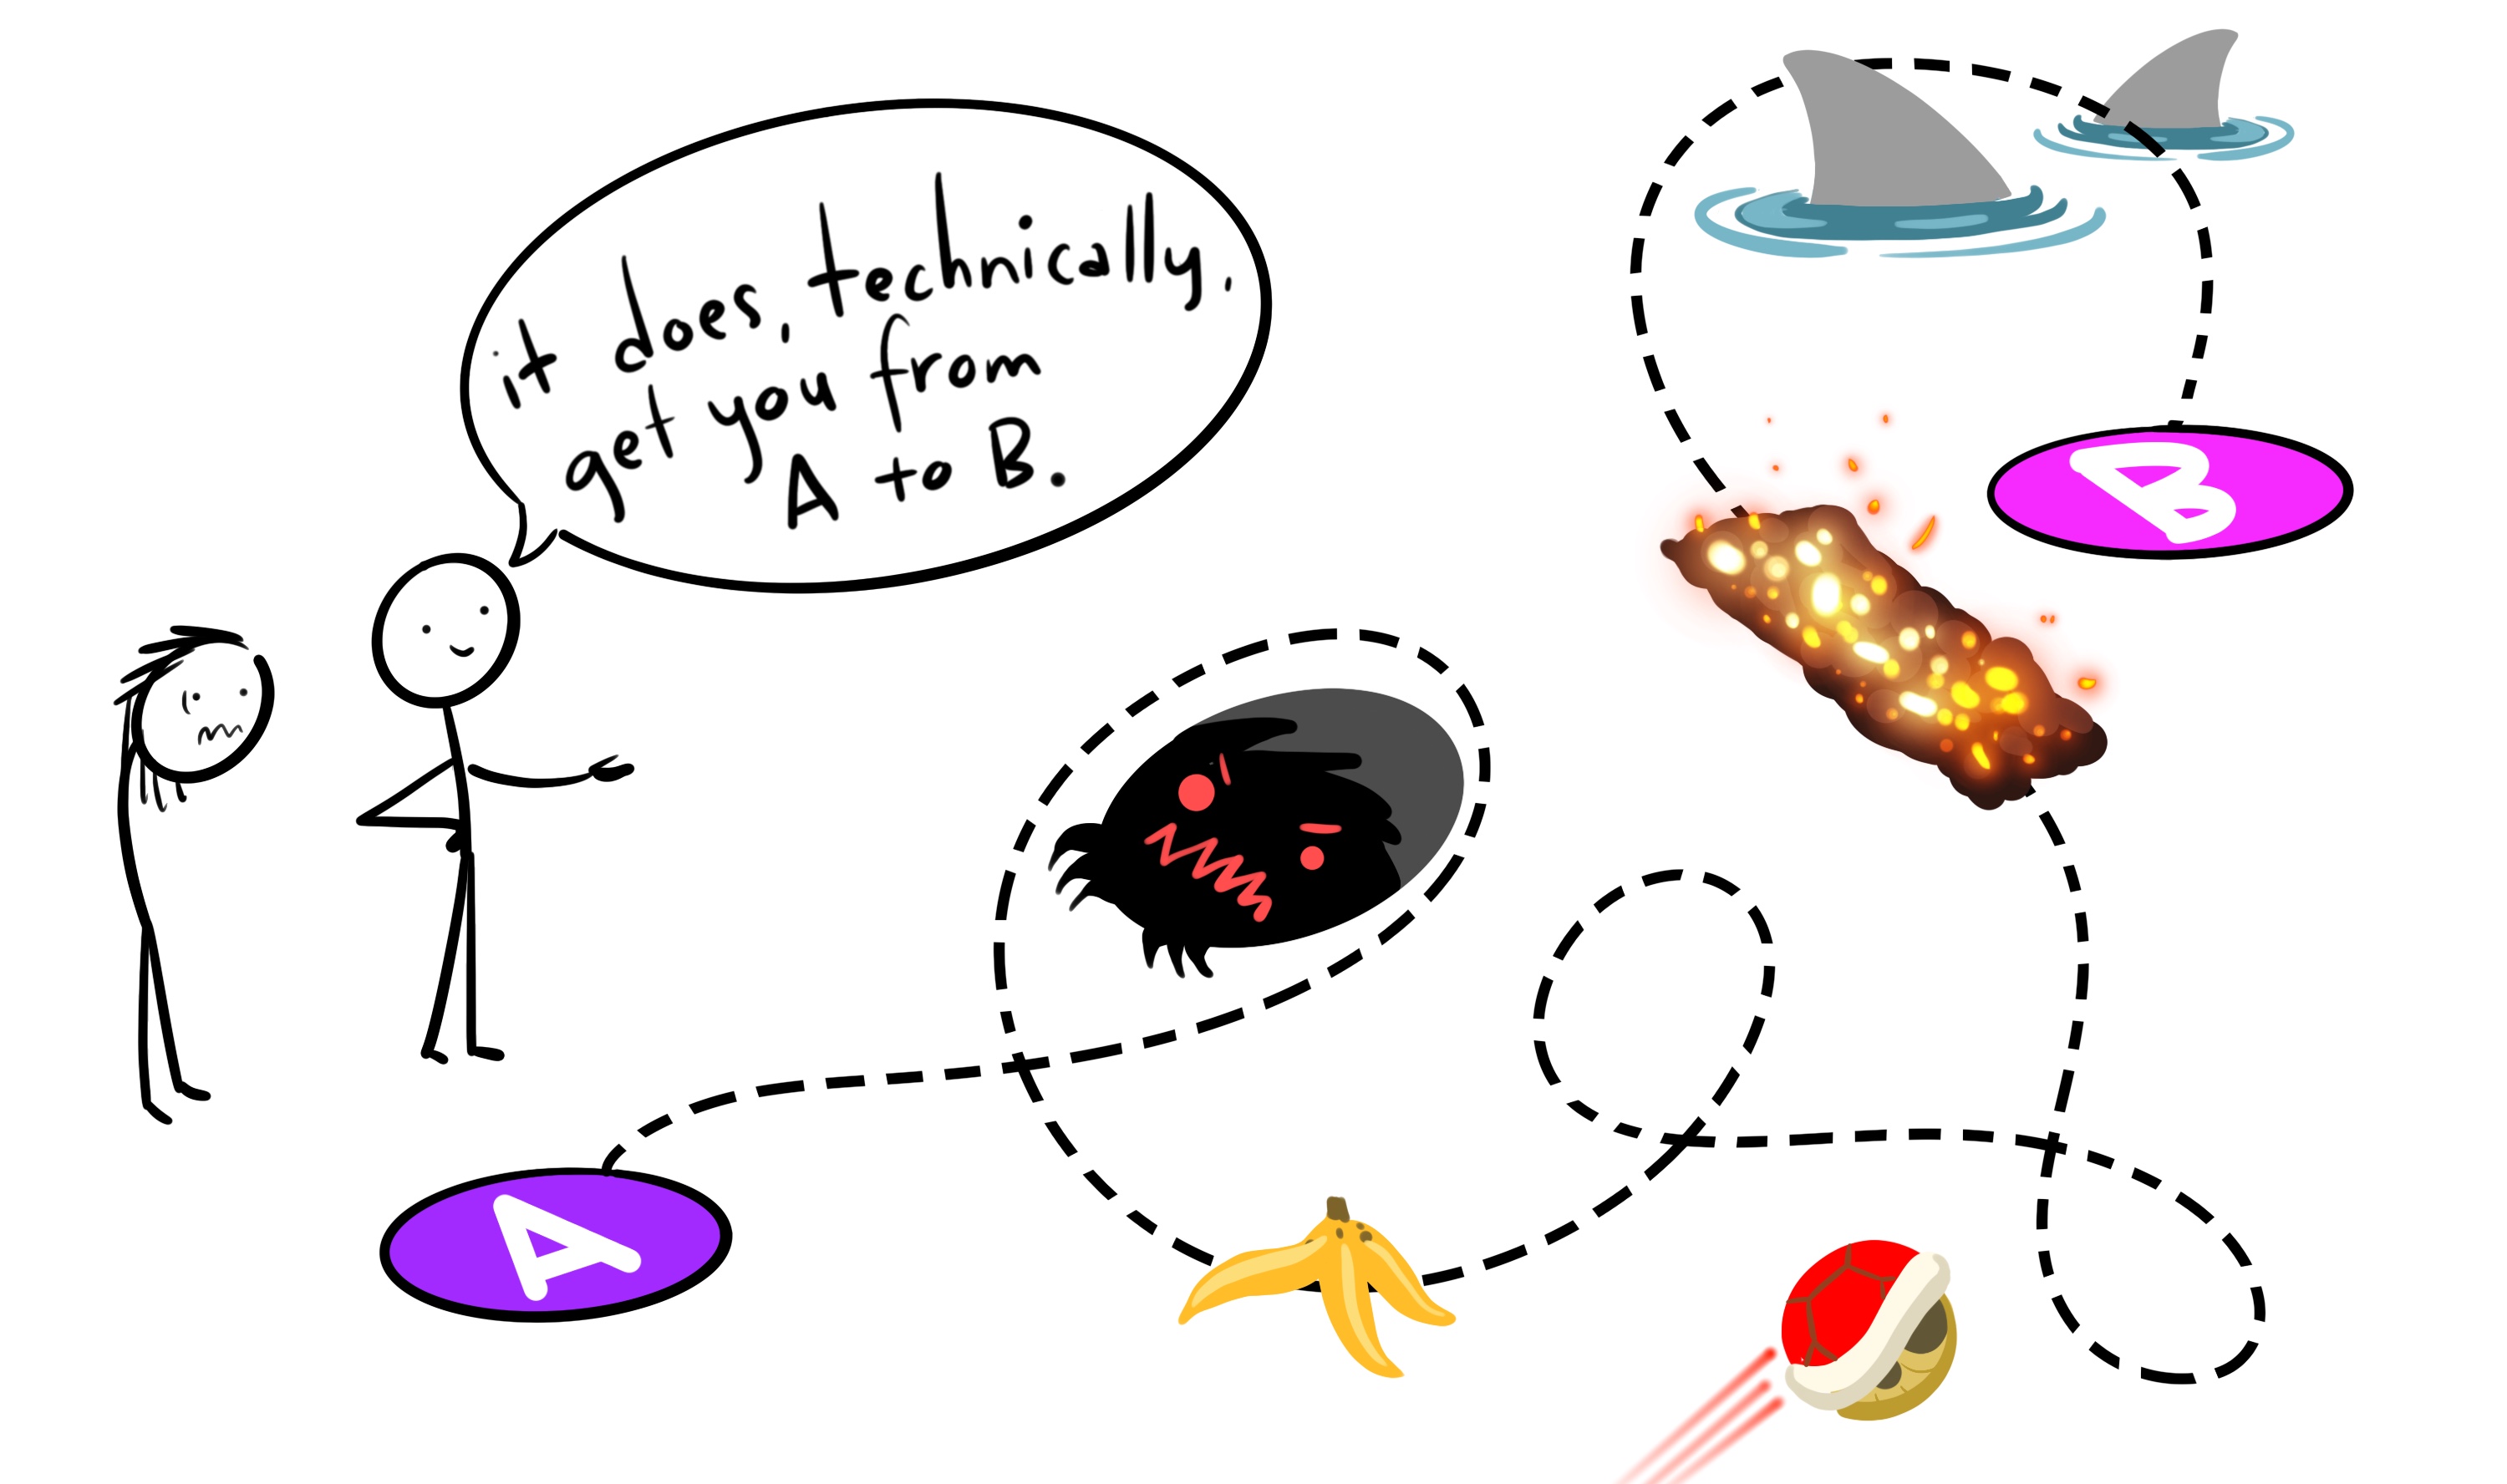 it does, technically,
get you from
A to B.
B
A